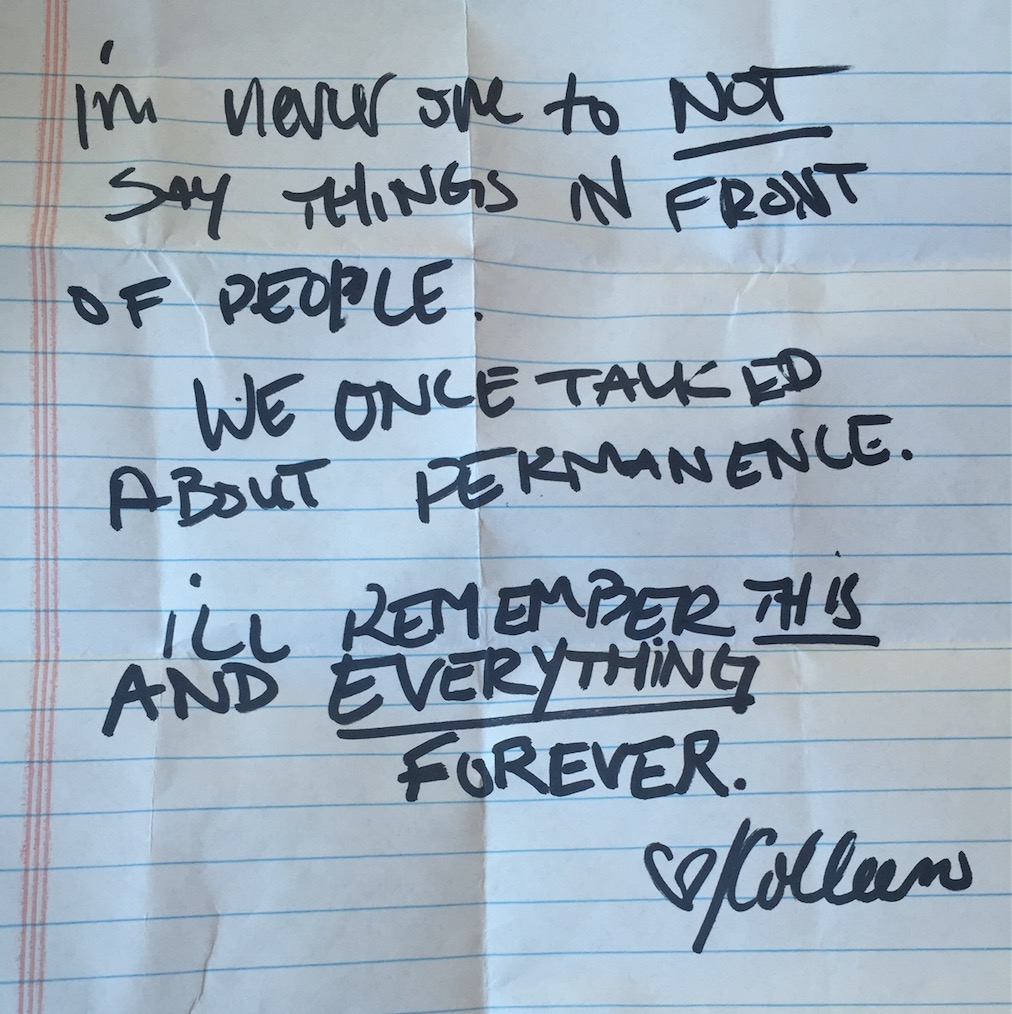 im never one to NOT
SAY THINGS IN FRONT
OF PEOPLE.
WE ONCE TALKED
ABOUT PERMANENCE.
iLL REMEMBER THIS
AND EVERYTHiNG
FOREVER.
♡/Colleen